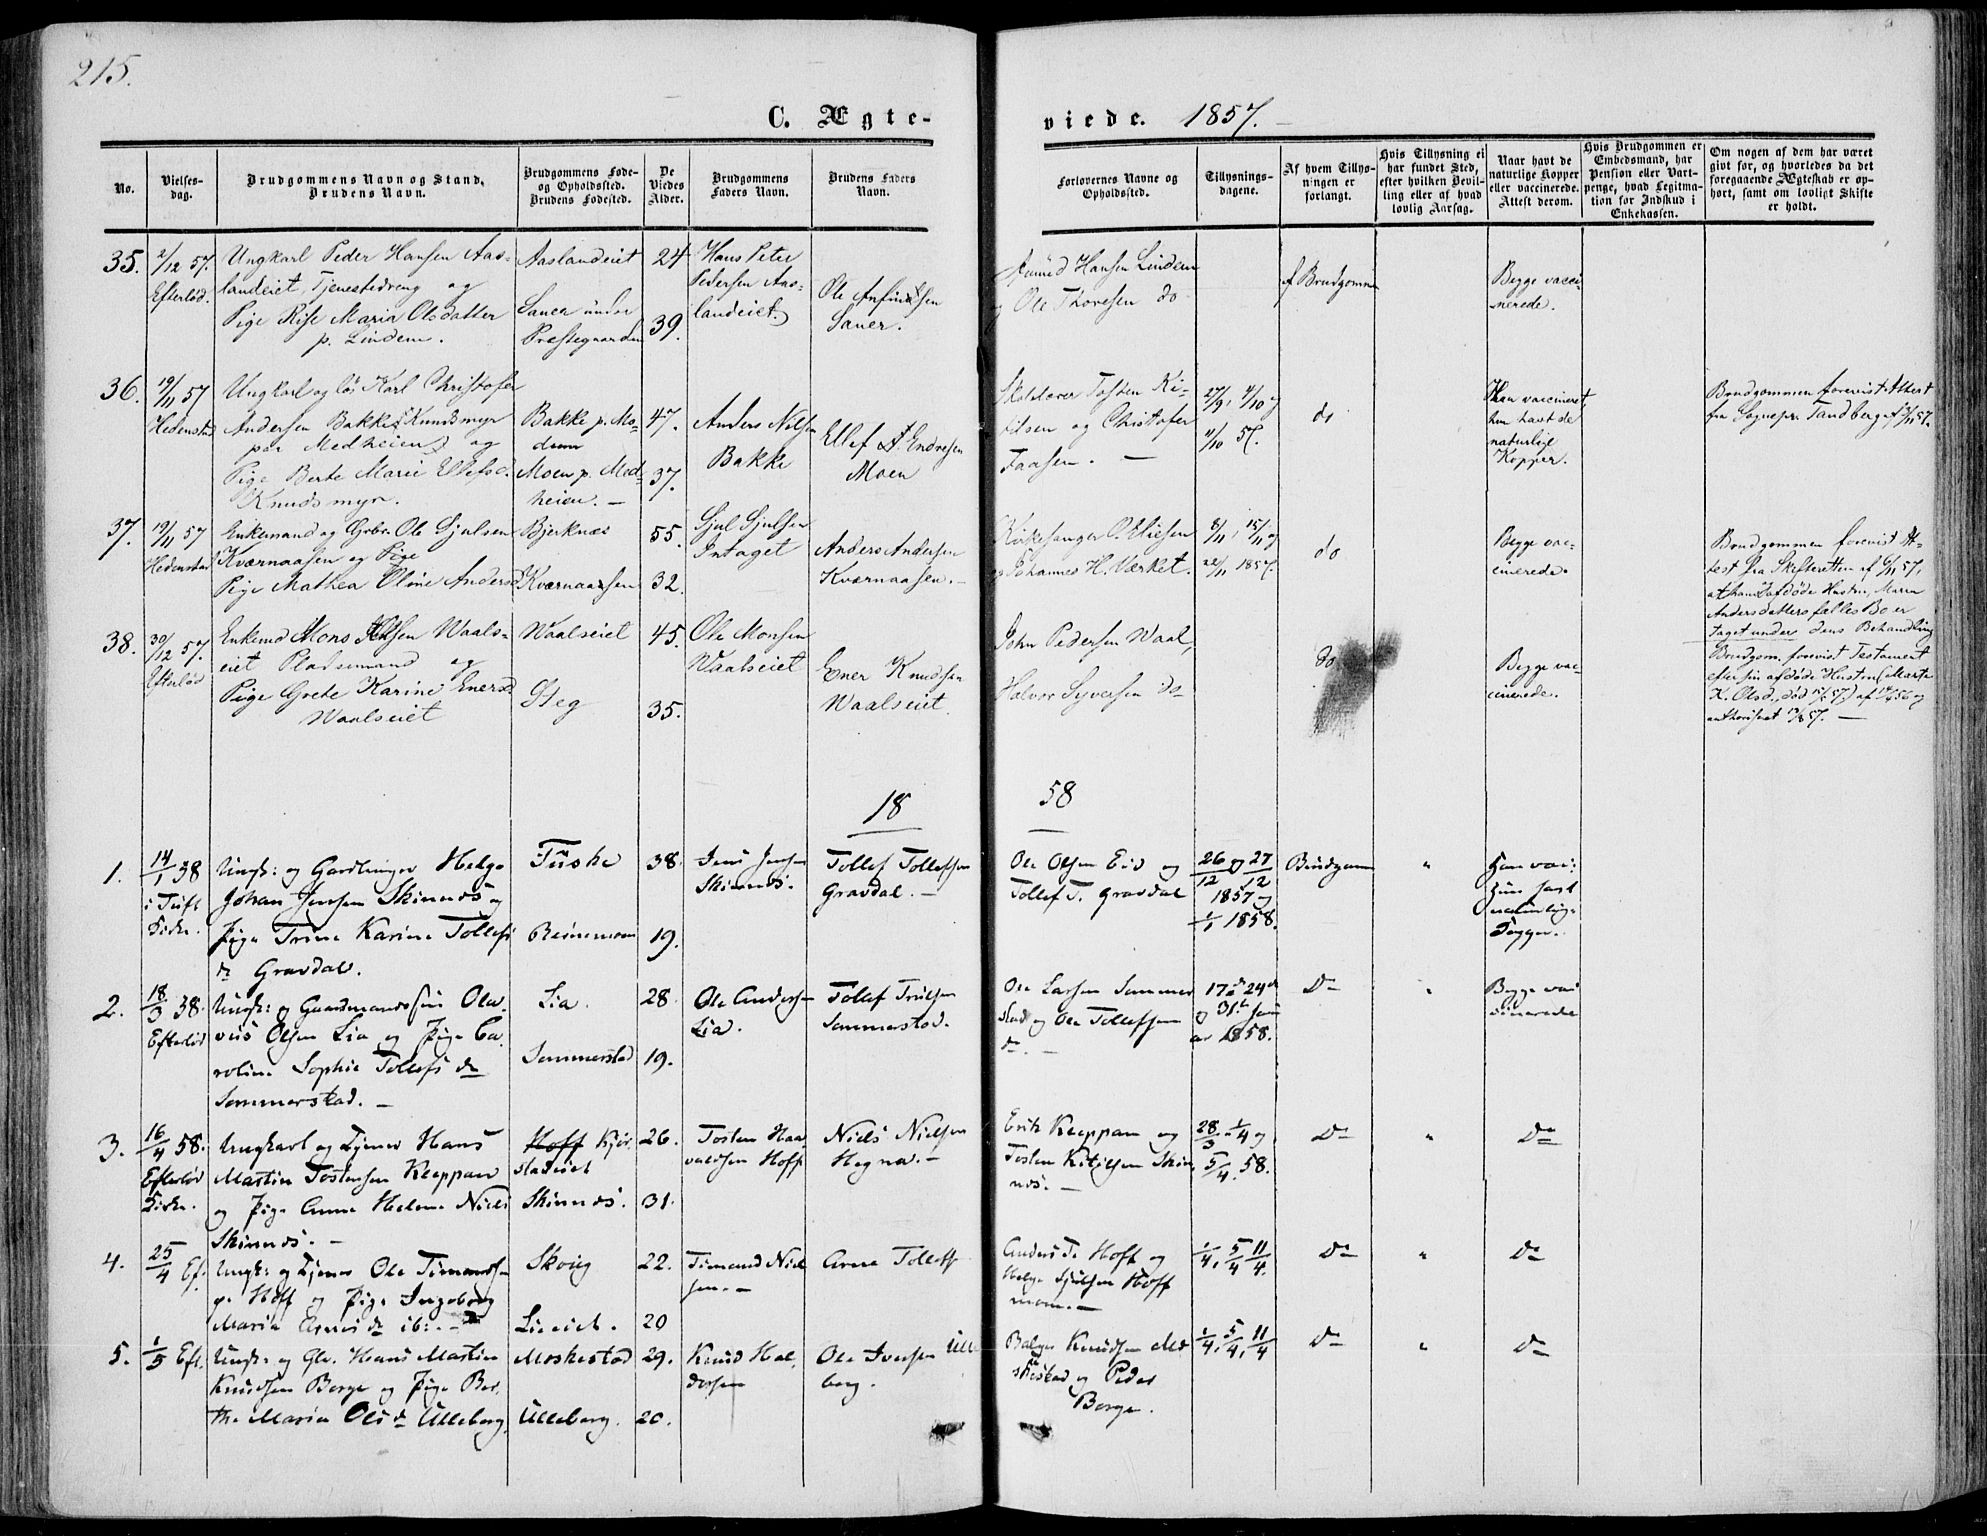 215.
C. Ægte-
viede. 1857.
No.
Vielses-
dag.
Brudgommens Navn og Stand,
Brudens Navn.
Brudgommens Føde-
og Opholdssted.
Brudens Fødested.
De
Viedes
Alder.
Brudgommens
Faders Navn.
Brudens Faders
Navn.
Forlovernes Navne og
Opholdssted.
Tillysnings-
dagene.
Af hvem Tillys-
ningen er
forlangt.
Hvis Tillysning ei
har fundet Sted,
efter hvilken Bevil-
ling eller af hvad
lovlig Aarsag.
Naar havt de
naturlige Kopper
eller vaccinerede.
Attest derom.
Hvis Brudgommen er
Embedsmand, har
Pension eller Vart-
penge, hvad Legitma-
tion for Indskud i
Enkekassen.
Om nogen af dem har været
givt før, og hvorledes da det
foregaaende Ægteskab er op-
hørt, samt om lovligt Skifte
er holdt.
35.
2/12 57.
Efterlød.
Ungkarl Peder Hansen Aas-
landeiet, Tjenestedreng og
Pige Rise Maria Olsdatter
p. Lindem.
Aaslandeiet
Sauer under
Præstegaarden
24
39.
Hans Peter
Pedersen Aas-
landeiet.
Ole Anfindsen
Sauer.
Hansen Lindem
og Ole Thoresen do
af Brudgommen
Begge vacci-
nerede.
36.
19/11 57
Hedenstad
Ungkarl og løs Karl Christofer
Andersen Bakke, Knudsmyr
paa Medheien og
Pige Berte Marie Ellefsd.
Knudsmyr.
Bakke p. Mo-
dum
Moen p. Med-
heien. -
47.
37.
Anders Nilsen
Bakke
Ellef Endresen
Moen
Skolelærer Tosten Ki-
tilsen og Christofer
Faasen. -
27/9, 4/10 og
11/10 57.
do
Han vaccineret,
hun havt de
naturlige
Kopper.
Brudgommen forevist Attest
fra Sognepr. Tandberg af 3/11 57.
37.
19/11 57
Hedenstad
Enkemand og Grbr. Ole Gjulsen
Kværnaasen og Pige
Pige Mathea Oline Andersd.
Bjerknæs
Kværnaasen
55.
32.
Gjul Gjulsen
Intaget
Anders Andersen
Kværnaasen. -
Kirkesanger O. Eliesen
og Johannes H. Værket.
8/11, 15/11 og
22/11 1857.
do
Begge vac-
cinerede.
Brudgommen forevist At-
test fra Skifteretten af 6/11 57,
at hans afdøde Hustru, Maren
Andersdatters fælles Bo er
taget under dens Behandling
38.
30/12 57.
Efterlød
Enkemd Mons Olsen Waals-
eiet Pladsemand og
Pige Grete Karine Enersd.
Waalseiet
Waalseiet
Steg
45.
35.
Ole Monsen
Waalseiet
Ener Knudsen
Waalseiet
John Pedersen Waal,
Halvor Syversen do
do
Begge vac-
cinerede.
Brudgom. forevist Testament
efter sin afdøde Hustru (Marte
K. Olsd., død 15/5 57) af 14/6 56 og
authoriseret 13/8 57. -
18
58
1.
14/1 58
i Tuft
Kirke.
Ungk: og Gaardbruger Helge
Johan Jensen Skinnæs og
Pige Trine Karine Tollefs
dr Gravdal.
Tuske
38.
19.
Jens Jensen
Skinnæs.
Tollef Tollefsen
Gravdal. -
Ole Olsen Eid og
Tollef T. Gravdal
26/12 og 27/12
1857 og
1/1 1858.
Brudgom
"
Han vac:
hun havt
naturlige
Kopper.
2.
18/3 58.
Efterlød
Ungk: og Gaardmandssøn Ola-
vus Olsen Lia og Pige Ca-
roline Sophie Tollefs dr
Sommerstad. -
Lia.
Sommerstad
28
19.
Ole Andersen
Lia.
Tollef Trulsen
Sommerstad.
Ole Larsen Sommer
stad og Ole Tollefsen
do. -
17de 24de
og 31te Janu
ar 1858.
Do
"
Begge vac
cinerede
3.
16/4 58.
Efterlød
Kirke.
Ungkarl og Tjener Hans
Martin Tostensen Keppan
og Pige Anne Helene Niels
Skinnæs. -
Hoff Kjør-
stadeiet
Skinnæs.
26.
31.
Tosten Haa-
valdsen Hoff
Niels Nielsen
Hegna. -
Erik Keppan og
Tosten Kitilsen Skin
næs. -
28/3 1/4 og
5/4. 58.
Do
"
Do
4.
25/4 Ef.
Ungk: og Tjener Ole Timandsen
p. Hoff og Pige Ingeborg
Maria Arnes dr ib: -
Skoug
Lieeiet.
22.
20
Timand Niel
sen. -
Arne Tollefs
Anders T. Hoff og
Helge Gjulsen Hoff
moen. -
1/4, 5/4 11/4.
Do
"
Do
5.
1/5 Eft.
Ungk: og Glv. Hans Martin
Knudsen Borge og Pige Ber.
the Maria Ols dr Ulleberg.
Moskestad
Ulleberg.
29.
20.
Knud Hal,
vorsen
Ole Iversen Ulle
berg.
Knudsen Mo
skestad og Peder
Borge.
1/4, 5/4, 11/4
Do
"
Do